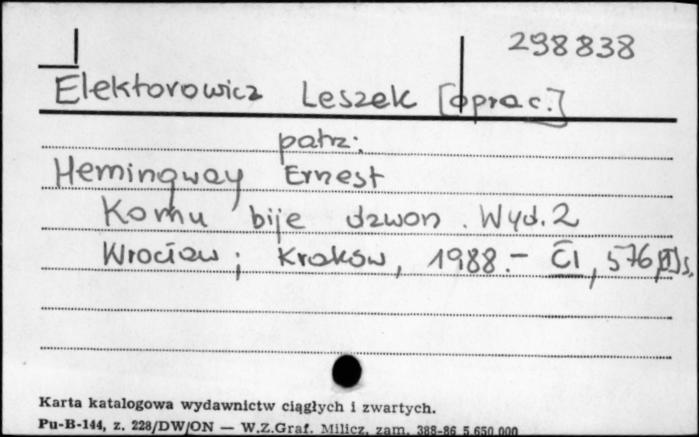 298838
Elektorowicz Leszek [oprac.]
patrz:
Hemingway Ernest
Komu bije dzwon. Wyd. 2
Wrocław; Kraków, 1988.- CI, 576, s.
Karta katalogowa wydawnictw ciągłych i zwartych.
Pu-B-144, z. 228/DW/ON — W.Z.Graf. Milicz, zam. 388-86 5.650.000